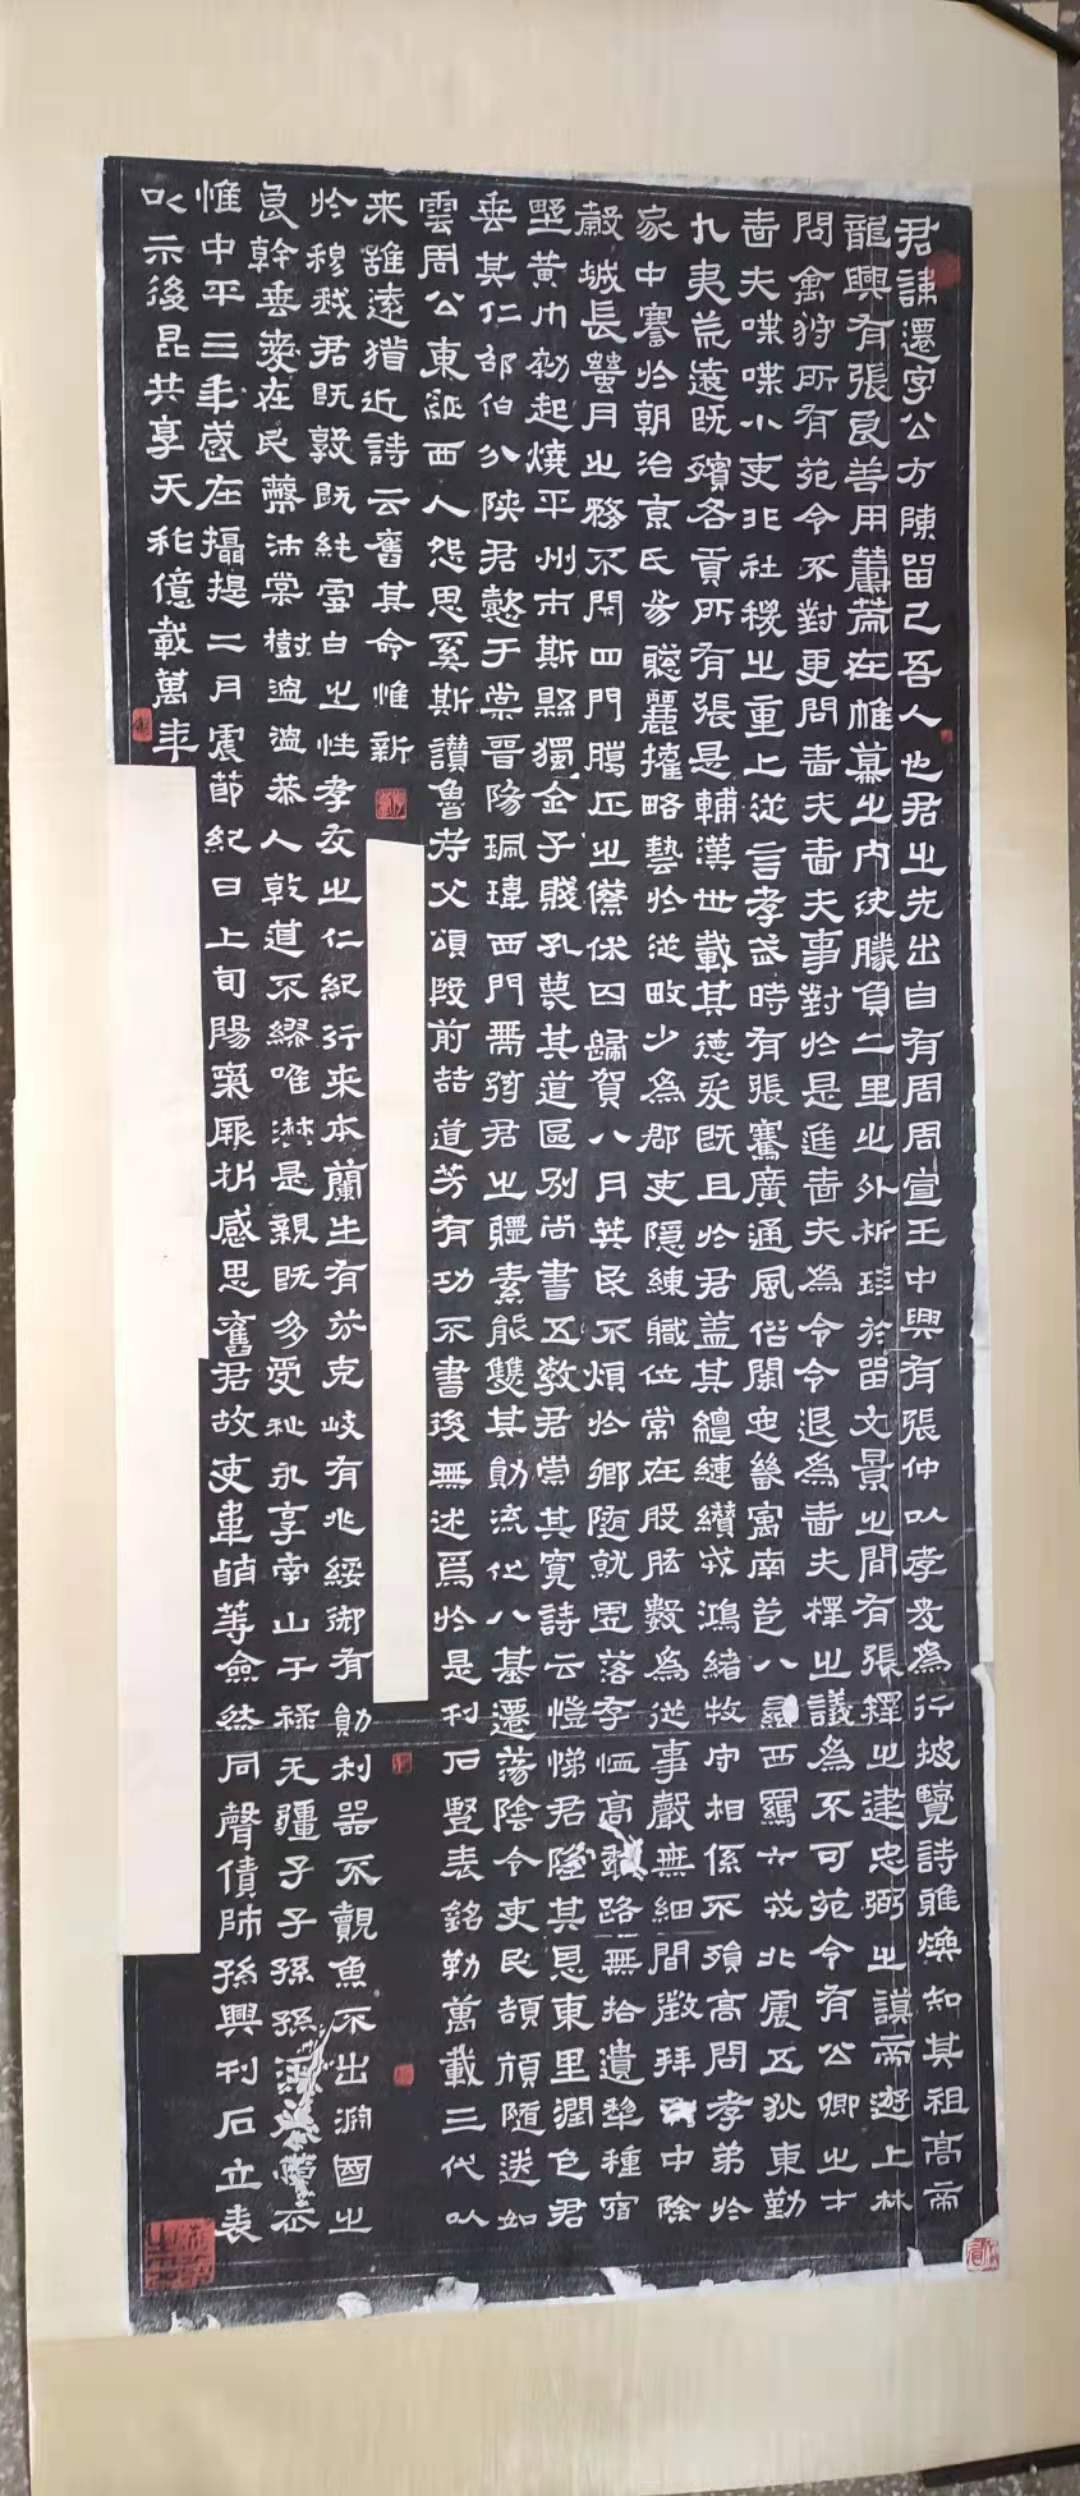 君諱遷字公方陳留己吾人也君之先出自有周周宣王中興有張仲以孝友為行披覽詩雅煥知其祖高帝
龍興有張良善用籌策在帷幕之內決勝負千里之外析珪於留文景之間有張釋之建忠弼之謨帝遊上林
問禽狩所有苑令不對更問嗇夫嗇夫事對於是進嗇夫為令令退為嗇夫釋之議為不可苑令有公卿之才
嗇夫喋喋小吏非社稷之重上從言孝武時有張騫廣通風俗開定畿寓南苞八蠻西羈六戎北震五狄東勤
九夷荒遠既殯各貢所有張是輔漢世載其德爰既且於君蓋其繵縺纘戎鴻緒牧守相係不殞高問孝弟於
家中謇於朝治京氏易聰麗權略藝於從畋少為郡吏隱練職位常在股肱數為從事聲無細聞徵拜中除
穀城長蠶月之務不閉四門臘正之僚休囚歸賀八月筭民不煩於鄉隨就虛落存恤高路無拾遺犁種宿
野黃巾初起燒平州市斯縣獨全子賤孔蔑其道區別尚書五教君崇其寬詩云愷悌君隆其恩東里潤色君
垂其仁邵伯分陝君懿于棠晉陽珮瑋西門帶弦君之體素能雙其勛流化八基遷蕩陰令吏民頡頏隨送如
雲周公東征西人怨思奚斯讚魯考父頌殷前喆遺芳有功不書後無述焉於是刊石豎表銘勒萬載三代以
來雖遠猶近詩云舊其命惟新
於穆我君既敦既純雪白之性孝友之仁紀行來本蘭生有芬克岐有兆綏御有勛利器不覿魚不出淵國之
良幹垂愛在民蔽沛棠樹溫溫恭人乾道不繆唯淑是親既多受祉永享南山干祿无疆子子孫孫
惟中平三年歲在攝提二月震節紀日上旬陽氣厥析感思舊君故吏韋萌等僉然同聲賃師孫興刊石立表
以示後昆共享天祚億載萬年